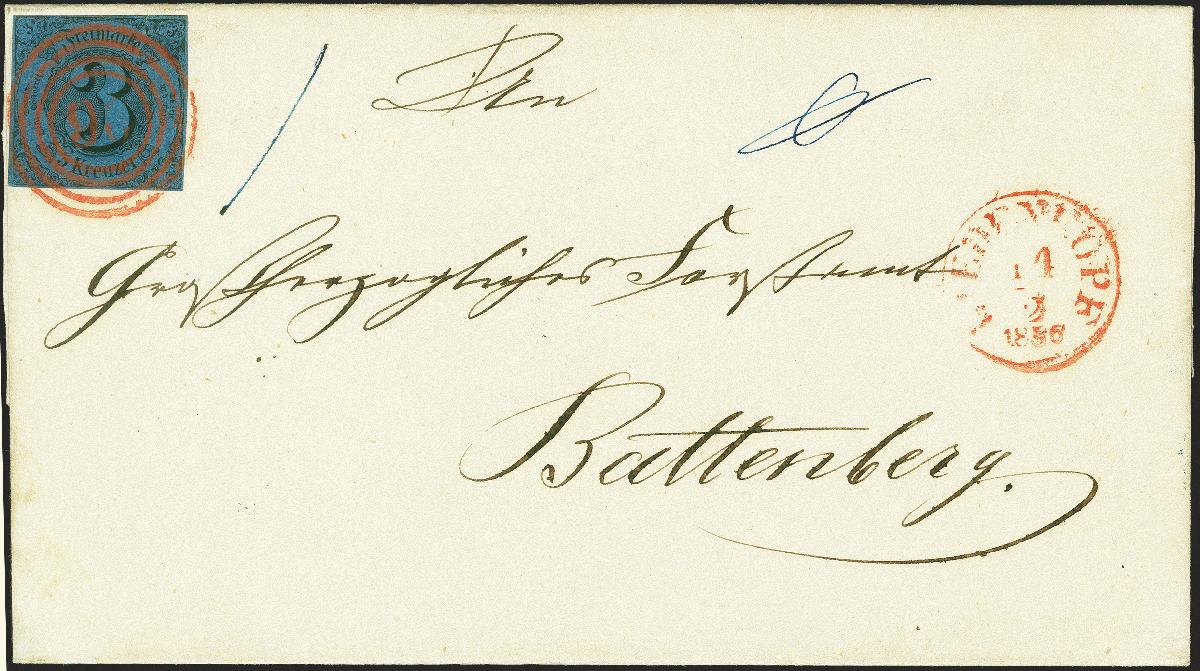 Freimarke
3
3 Kreuzer
An
Großherzogliches Forstamt
14
3
1856
Battenberg.